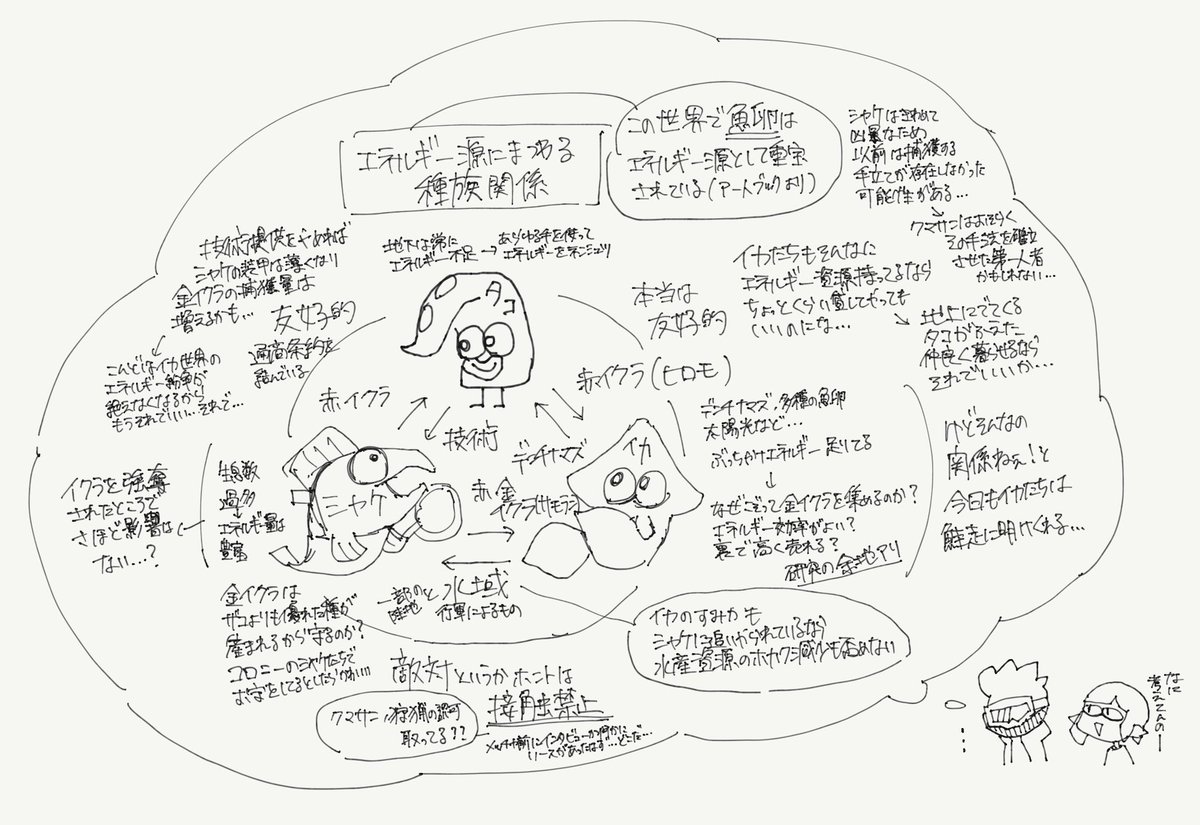 エネルギー源にまつわる
種族関係
この世界で魚卵は
エネルギー源として重宝
されている(アートブックより)
シャケはきわめて
凶暴なため
以前は捕獲する
手立てが存在しなかった
可能性がある…
クマサンはおそらく
その手法を確立
させた第一人者
かもしれない…
技術提供をやめれば
シャケの装甲は薄くなり
金イクラの捕獲量は
増えるかも…
こんどはイカ世界の
エネルギー紛争が
絶えなくなるから
もうそれでいい…それで…
地下は常に
エネルギー不足
→あらゆる手を使って
エネルギーをネンシュツ
友好的
通商条約を
結んでいる
タコ
本当は
友好的
イカたちもそんなに
エネルギー資源持ってるなら
ちょっとくらい貸してやっても
いいのにな…
地上にでてくる
タコがふえた
仲良く暮らせるなら
それでいいか…
赤イクラ
技術
赤イクラ(ヒロモ)
デンチナマズ
シャケ
イカ
赤金
イクラ(サモラン)
水域
一部の陸地と
行軍によるもの
デンチナマズ、多種の魚卵
太陽光など…
ぶっちゃけエネルギー足りてる
なぜこぞって金イクラを集めるのか?
エネルギー効率がよい?
裏で高く売れる?
研究の余地アリ
けどそんなの
関係ねぇ!と
今日もイカたちは
鮭走に明けくれる…
イクラを強奪
されたところで
さほど影響は
ない…?
生息数
過多
エネルギー量は
豊富
金イクラは
ザコよりも優れた種が
産まれるから守るのか?
コロニーのシャケたちで
お守をしてるとしたらかわいい
敵対というかホントは
接触禁止
クマサン、狩猟の認可
取ってる??
イカのすみかも
シャケに追いやられているなら
水産資源のホカク減少も否めない
なに
考えてんのー